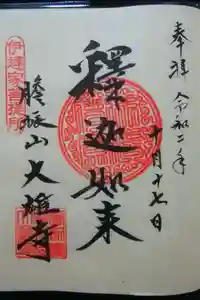 奉拝 令和二年
十月十七日
釋迦如来
伊達家
膽振山大雄寺